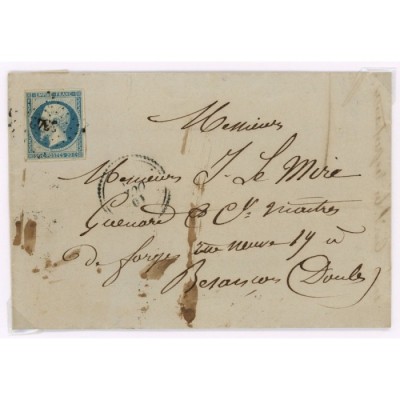 EMPIRE FRANC
Messieurs
Messieurs J. Le Mire
Guenard & Cie maitres
de forges rue neuve 19 à
Besançon (Doubs)